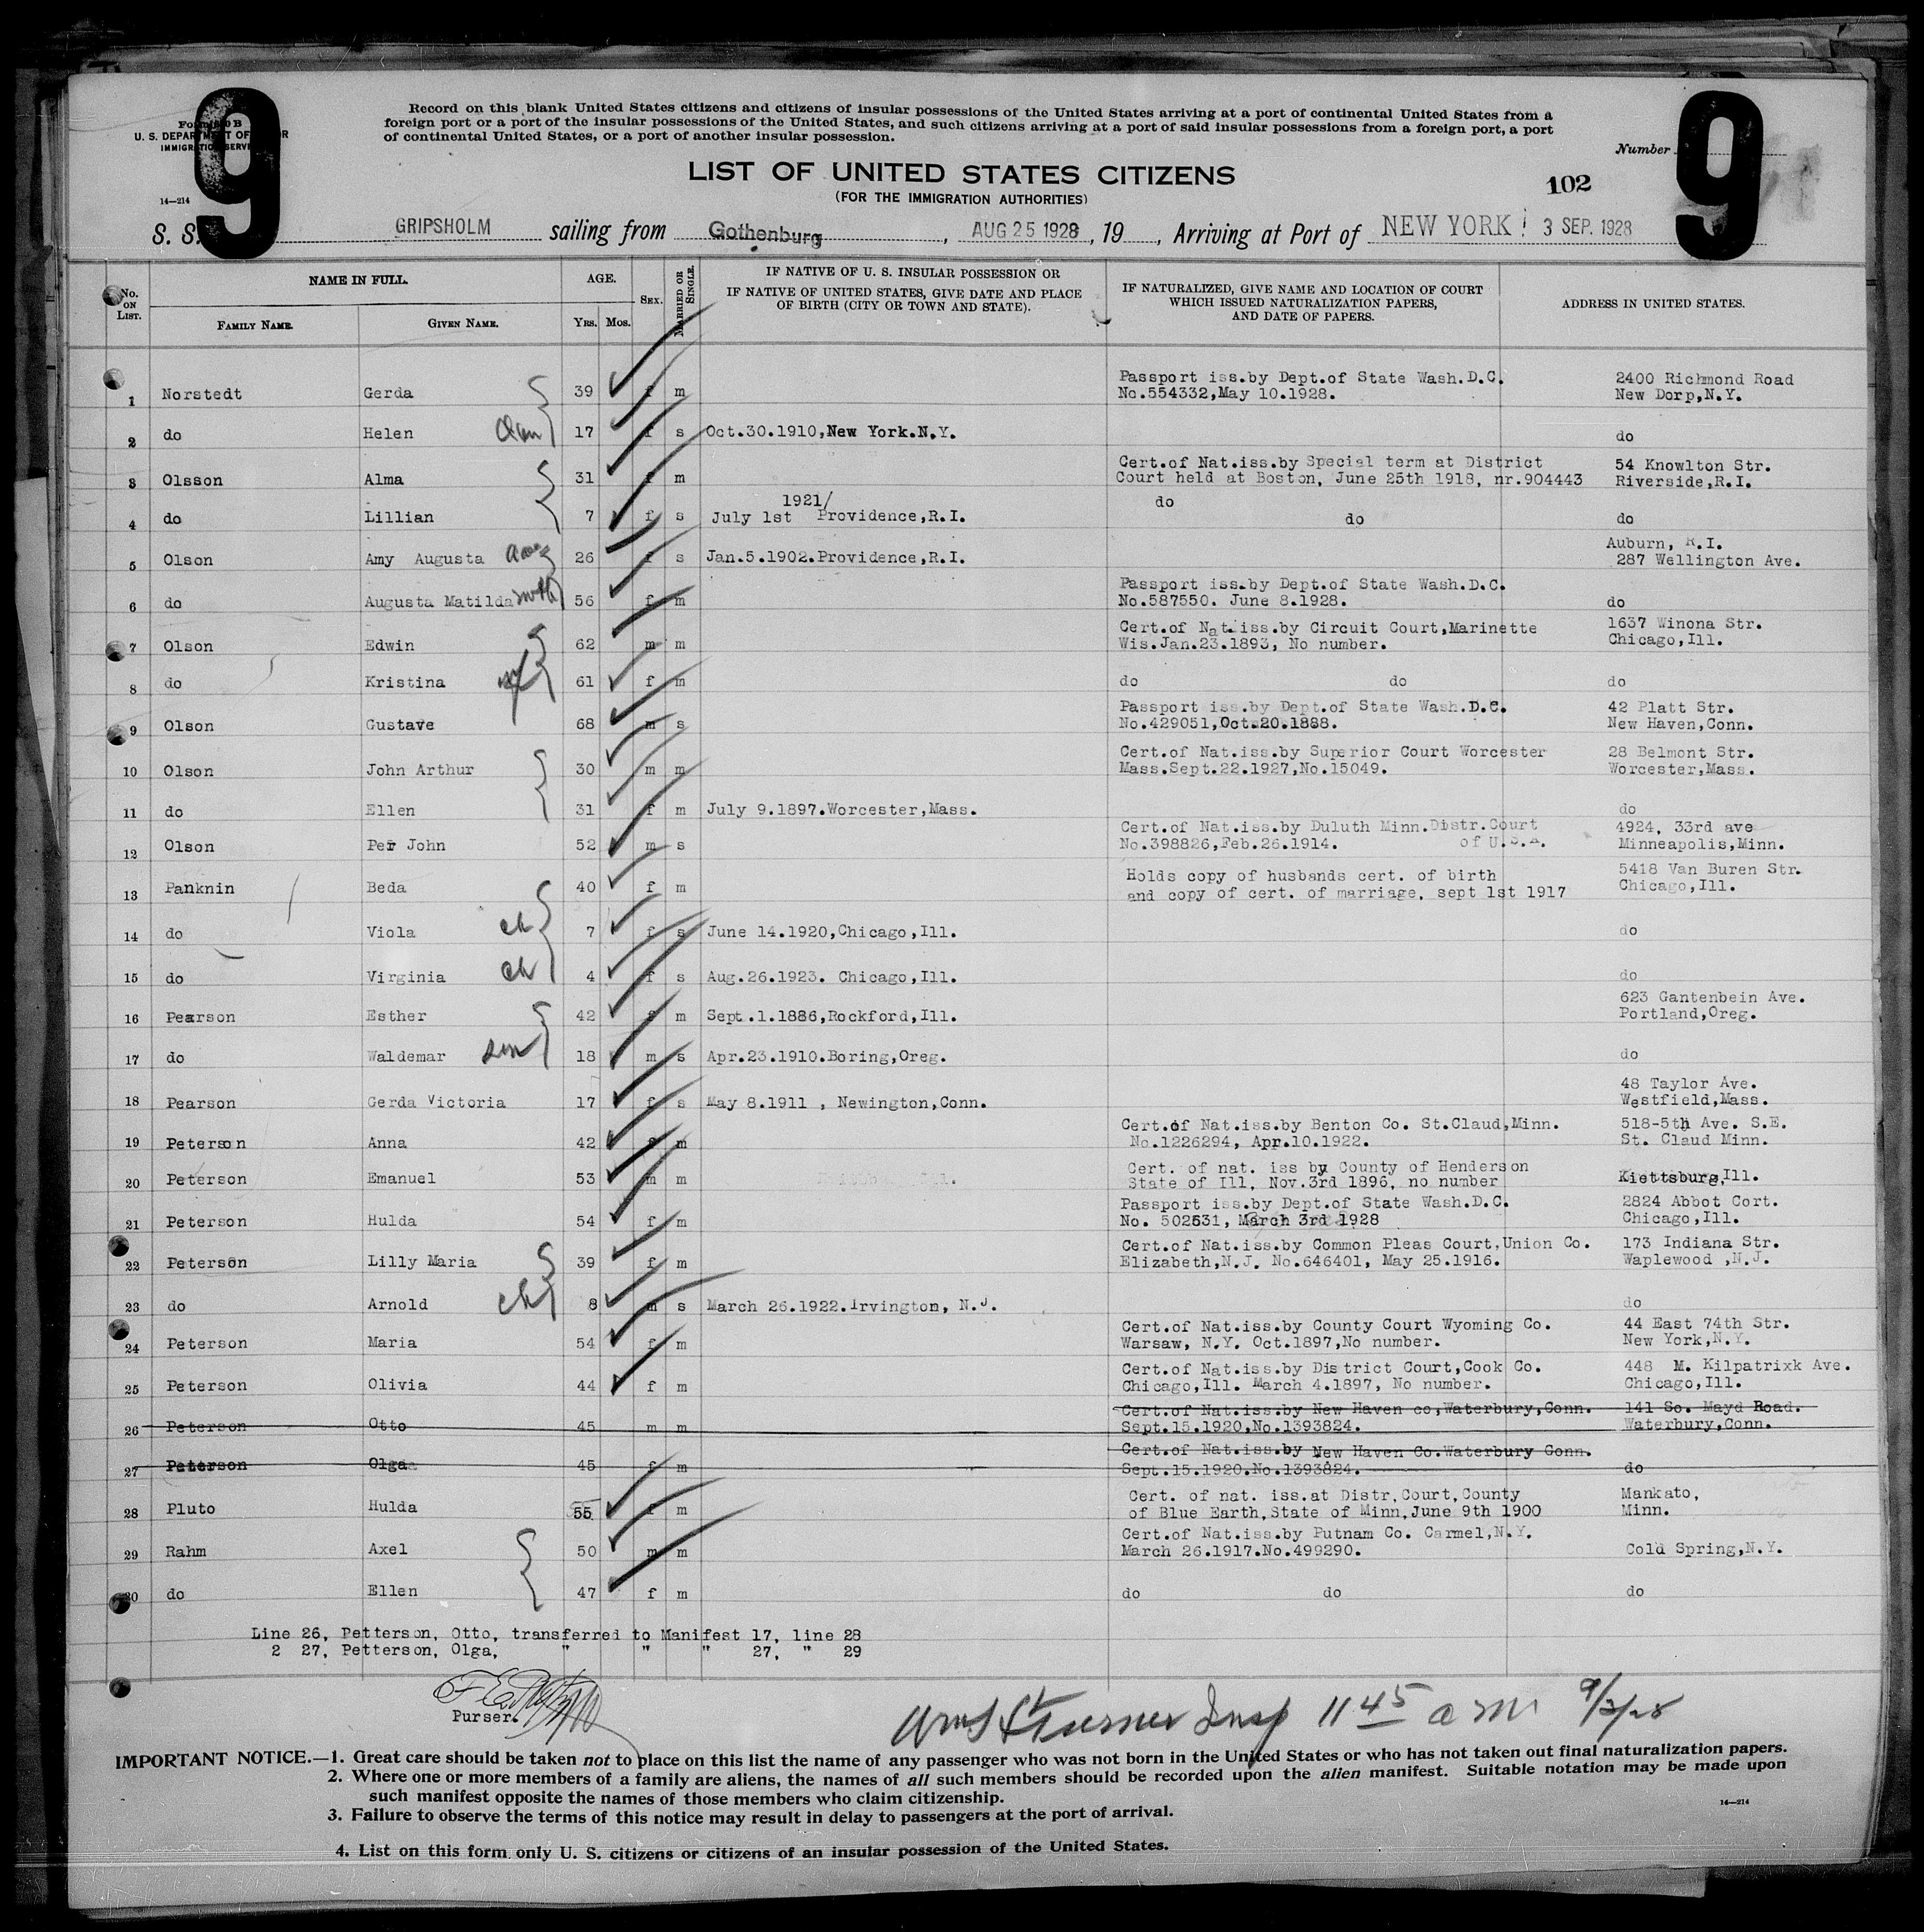 9
9
Form 630 B
U. S. DEPARTMENT OF LABOR
IMMIGRATION SERVICE
14—214
Record on this blank United States citizens and citizens of insular possessions of the United States arriving at a port of continental United States from a
foreign port or a port of the insular possessions of the United States, and such citizens arriving at a port of said insular possessions from a foreign port, a port
of continental United States, or a port of another insular possession.
Number
LIST OF UNITED STATES CITIZENS
102
(FOR THE IMMIGRATION AUTHORITIES)
S. S. GRIPSHOLM sailing from Gothenburg, AUG 25 1928, 19 , Arriving at Port of NEW YORK 3 SEP. 1928
No. ON LIST. NAME IN FULL. FAMILY NAME. GIVEN NAME. AGE. YRS. MOS. SEX. MARRIED OR SINGLE. IF NATIVE OF U. S. INSULAR POSSESSION OR IF NATIVE OF UNITED STATES, GIVE DATE AND PLACE OF BIRTH (CITY OR TOWN AND STATE). IF NATURALIZED, GIVE NAME AND LOCATION OF COURT WHICH ISSUED NATURALIZATION PAPERS, AND DATE OF PAPERS. ADDRESS IN UNITED STATES.
Passport iss.by Dept.of State Wash.D.C. 2400 Richmond Road
1 Norstedt Gerda 39 f m No.554332,May 10.1928. New Dorp,N.Y.
2 do Helen 17 f s Oct.30.1910,New York.N.Y. do
Cert.of Nat.iss.by Special term at District 54 Knowlton Str.
3 Olsson Alma 31 f m Court held at Boston, June 25th 1918, nr.904443 Riverside,R.I.
1921/ do
4 do Lillian 7 f s July 1st Providence,R.I. do do
Auburn, R.I.
5 Olson Amy Augusta 26 f s Jan.5.1902.Providence,R.I. 287 Wellington Ave.
Passport iss.by Dept.of State Wash.D.C.
6 do Augusta Matilda 56 f m No.587550. June 8.1928. do
Cert.of Nat.iss.by Circuit Court,Marinette 1637 Winona Str.
7 Olson Edwin 62 m m Wis.Jan.23.1893, No number. Chicago,Ill.
8 do Kristina 61 f m do do do
Passport iss.by Dept.of State Wash.D.C. 42 Platt Str.
9 Olson Gustave 68 m s No.429051,Oct.20.1888. New Haven,Conn.
Cert.of Nat.iss.by Superior Court Worcester 28 Belmont Str.
10 Olson John Arthur 30 m m Mass.Sept.22.1927,No.15049. Worcester,Mass.
11 do Ellen 31 f m July 9.1897.Worcester,Mass. do
Cert.of Nat.iss.by Duluth Minn.Distr.Court 4924, 33rd ave
12 Olson Per John 52 m s No.398826,Feb.26.1914. of U.S.A. Minneapolis,Minn.
Holds copy of husbands cert. of birth 5418 Van Buren Str.
13 Panknin Beda 40 f m and copy of cert. of marriage, sept 1st 1917 Chicago,Ill.
14 do Viola ch 7 f s June 14.1920,Chicago,Ill. do
15 do Virginia ch 4 f s Aug.26.1923. Chicago,Ill. do
623 Gantenbein Ave.
16 Pearson Esther 42 f m Sept.1.1886,Rockford,Ill. Portland,Oreg.
17 do Waldemar son 18 m s Apr.23.1910.Boring,Oreg. do
48 Taylor Ave.
18 Pearson Gerda Victoria 17 f s May 8.1911 , Newington,Conn. Westfield,Mass.
Cert.of Nat.iss.by Benton Co. St.Claud,Minn. 518-5th Ave. S.E.
19 Peterson Anna 42 f m No.1226294, Apr.10.1922. St. Claud Minn.
Cert. of nat. iss by County of Henderson
20 Peterson Emanuel 53 m m State of Ill, Nov.3rd 1896, no number Kiettsburg,Ill.
Passport iss.by Dept.of State Wash.D.C. 2824 Abbot Cort.
21 Peterson Hulda 54 f m No. 502531, March 3rd 1928 Chicago,Ill.
Cert.of Nat.iss.by Common Pleas Court,Union Co. 173 Indiana Str.
22 Peterson Lilly Maria 39 f m Elizabeth,N.J. No.646401, May 25.1916. Waplewood ,N.J.
23 do Arnold ch 8 m s March 26.1922.Irvington, N.J. do
Cert.of Nat.iss.by County Court Wyoming Co. 44 East 74th Str.
24 Peterson Maria 54 f m Warsaw, N.Y. Oct.1897,No number. New York,N.Y.
Cert.of Nat.iss.by District Court,Cook Co. 448 M. Kilpatrixk Ave.
25 Peterson Olivia 44 f m Chicago,Ill. March 4.1897, No number. Chicago,Ill.
Cert.of Nat.iss.by New Haven co,Waterbury,Conn. 141 So. Mayd Road.
26 Peterson Otto 45 m m Sept.15.1920,No.1393824. Waterbury,Conn.
Cert.of Nat.iss.by New Haven Co.Waterbury Conn.
27 Peterson Olga 45 f m Sept.15.1920.No.1393824. do
Cert. of nat. iss.at Distr,Court,County Mankato,
28 Pluto Hulda 55 f m of Blue Earth,State of Minn,June 9th 1900 Minn.
Cert.of Nat.iss.by Putnam Co. Carmel,N.Y.
29 Rahm Axel 50 m m March 26.1917.No.499290. Cold Spring,N.Y.
30 do Ellen 47 f m do do do
Line 26, Petterson, Otto, transferred to Manifest 17, line 28
2 27, Petterson, Olga, " " " 27, " 29
Purser.
Insp 11 45 a m 9/3/28
IMPORTANT NOTICE.—1. Great care should be taken not to place on this list the name of any passenger who was not born in the United States or who has not taken out final naturalization papers.
2. Where one or more members of a family are aliens, the names of all such members should be recorded upon the alien manifest. Suitable notation may be made upon
such manifest opposite the names of those members who claim citizenship.
3. Failure to observe the terms of this notice may result in delay to passengers at the port of arrival.
14—214
4. List on this form only U. S. citizens or citizens of an insular possession of the United States.